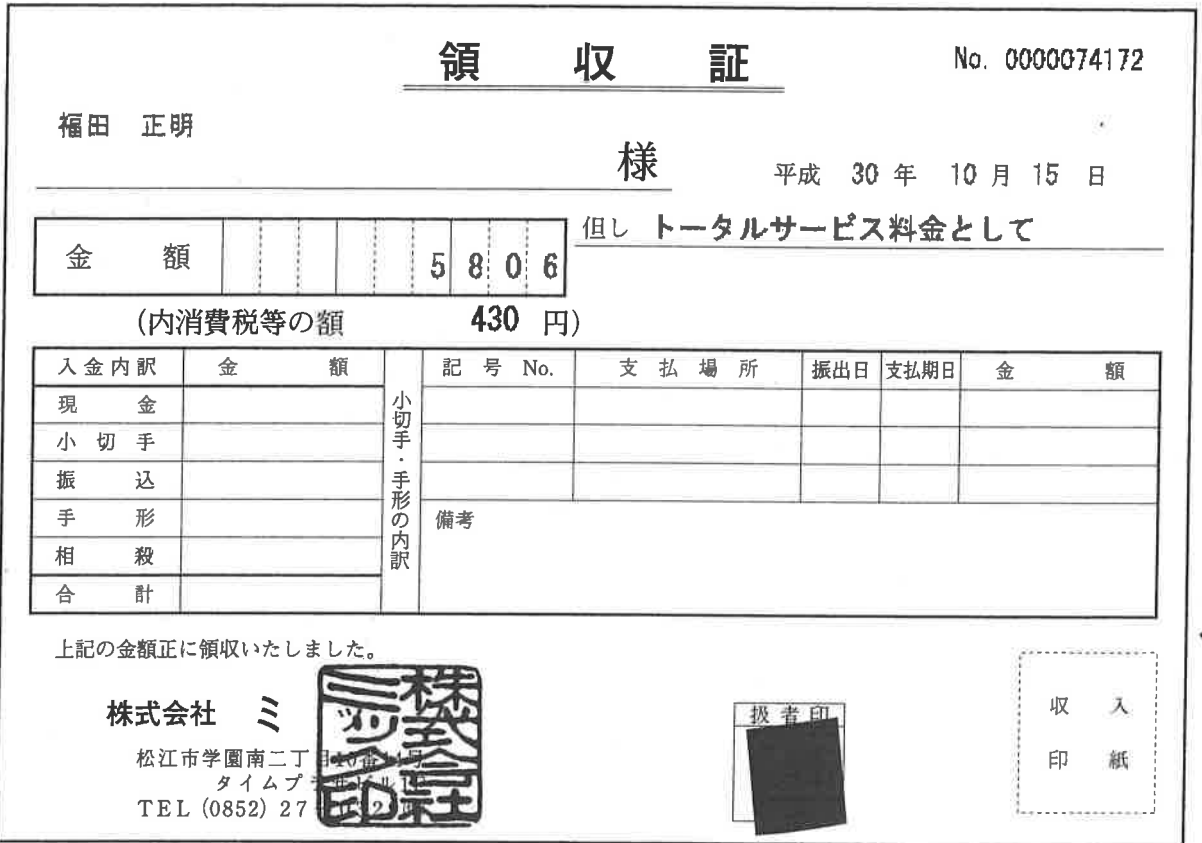 領収証
No. 0000074172
福田 正明
様
平成 30 年 10 月 15 日
金額 5806
但し トータルサービス料金として
(内消費税等の額 430 円)
入金内訳 金額
現金
小切手
振込
手形
相殺
合計
小切手・手形の内訳
記号 No. 支払場所 振出日 支払期日 金額
備考
上記の金額正に領収いたしました。
株式会社 ミ
松江市学園南二丁目10番14号
タイムプ
TEL (0852) 27
株式会社
ミック印
扱者印
収入
印紙